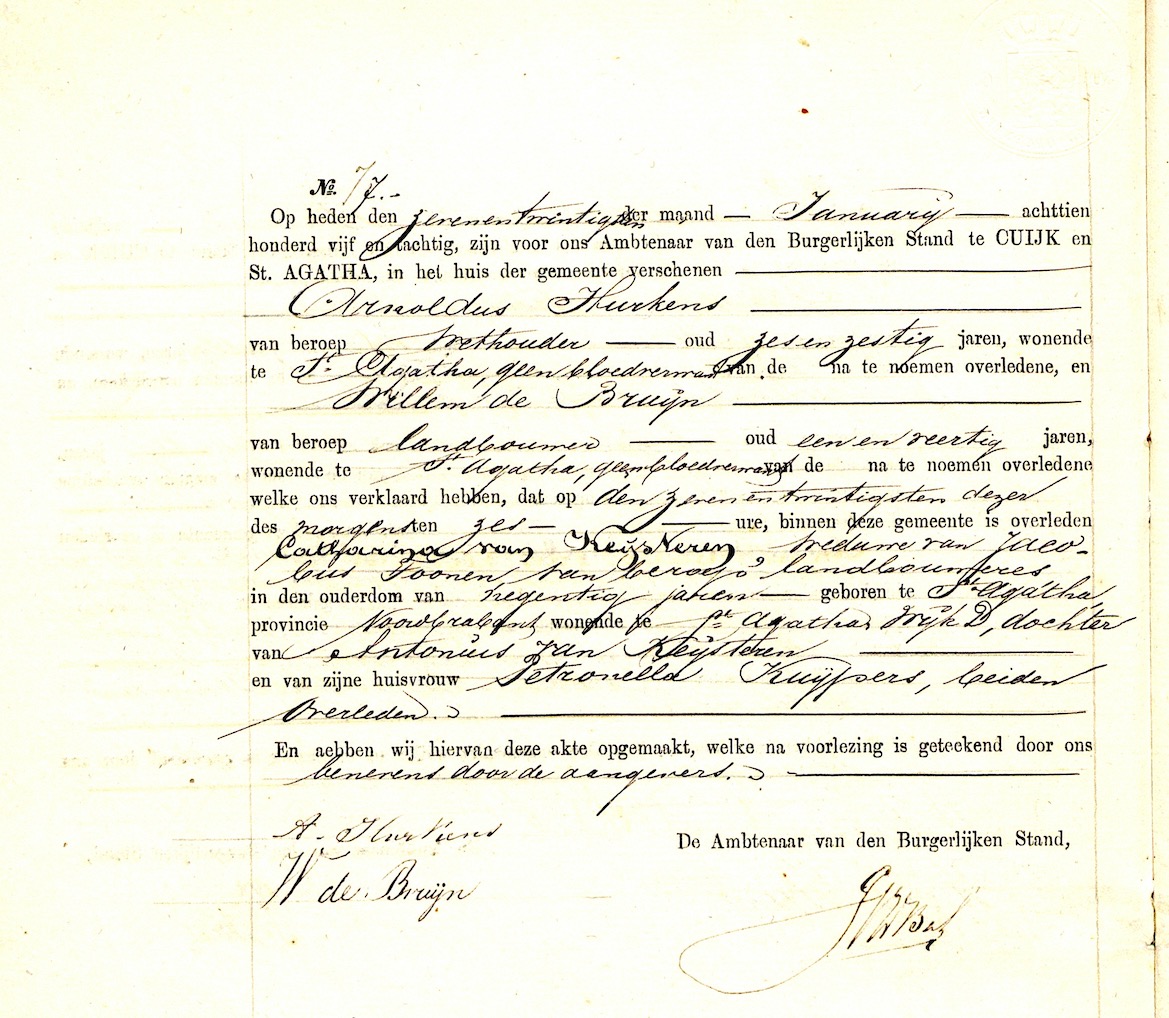 No. 7.-
Op heden den zevenentwintigsten der maand — January — achttien
honderd vijf en tachtig, zijn voor ons Ambtenaar van den Burgerlijken Stand te CUIJK en
St. AGATHA, in het huis der gemeente verschenen
Arnoldus Hurkens
van beroep Wethouder — oud zes en zestig jaren, wonende
te St. Agatha, geen bloedverwant van de na te noemen overledene, en
Willem de Bruijn
van beroep landbouwer — oud een en veertig jaren,
wonende te St. Agatha, geen bloedverwant van de na te noemen overledene
welke ons verklaard hebben, dat op den zevenentwintigsten dezer
des morgens ten zes — ure, binnen deze gemeente is overleden
Catharina van Keijsteren, weduwe van Jaco-
bus Toonen, van beroep landbouweres
in den ouderdom van negentig jaren — geboren te St. Agatha,
provincie Noordbrabant wonende te St. Agatha Wijk D, dochter
van Antonius van Keijsteren
en van zijne huisvrouw Petronella Kuijpers, beiden
overleden.
En aebben wij hiervan deze akte opgemaakt, welke na voorlezing is geteekend door ons
benevens door de aangevers.
A. Hurkens
De Ambtenaar van den Burgerlijken Stand,
W de Bruijn